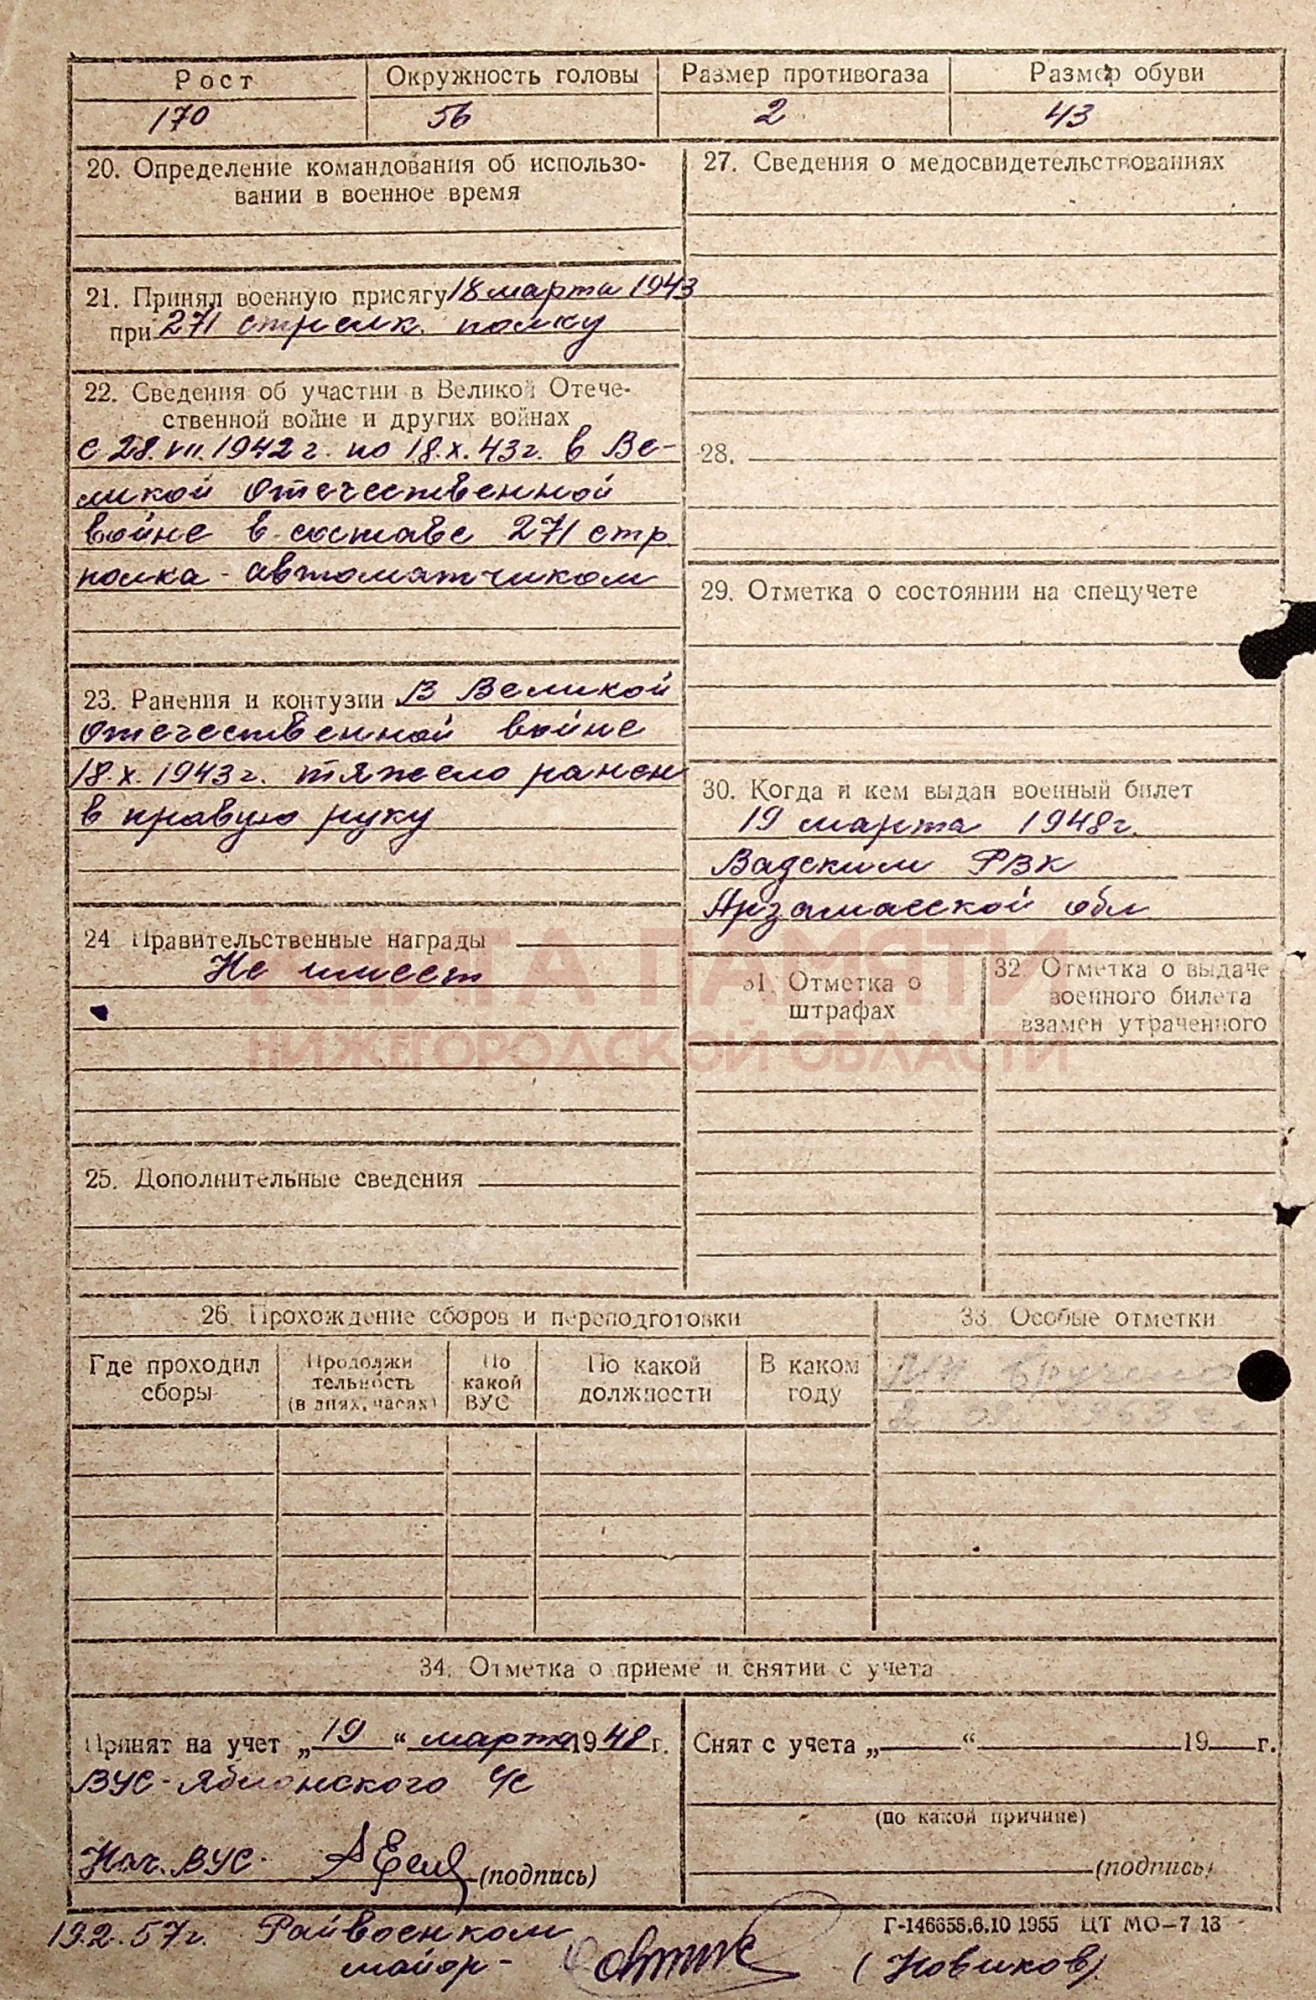 Рост Окружность головы Размер противогаза Размер обуви
170 56 2 43
20. Определение командования об использо-
вании в военное время
21. Принял военную присягу 18 марта 1943
при 271 стрелк. полку
22. Сведения об участии в Великой Отече-
ственной войне и других войнах
с 28.VII.1942 г. по 18.X.43 г. в Ве-
ликой Отечественной
войне в составе 271 стр
полка - автоматчиком
23. Ранения и контузии В Великой
Отечественной войне
18.X.1943 г. тяжело ранен
в правую руку
24 Правительственные награды
Не имеет
25. Дополнительные сведения
27. Сведения о медосвидетельствованиях
28.
29. Отметка о состоянии на спецучете
30. Когда и кем выдан военный билет
19 марта 1948 г.
Вадским РВК
Арзамасской обл
31. Отметка о
штрафах
32 Отметка о выдаче
военного билета
взамен утраченного
КНИГА ПАМЯТИ
НИЖЕГОРОДСКОЙ ОБЛАСТИ
26. Прохождение сборов и переподготовки
Где проходил
сборы
Продолжи
тельность
(в днях, часах)
По
какой
ВУС
По какой
должности
В каком
году
33. Особые отметки
вручено
34. Отметка о приеме и снятии с учета
Принят на учет „19“ марта 1948 г.
ВУС-Яблонского с/с
Нач. ВУС (подпись)
Снят с учета „ “ 19 г.
(по какой причине)
(подпись)
Г-146655.6.10 1955 ЦТ МО-7 13
19.2.57 г. Райвоенком
майор - (Новиков)